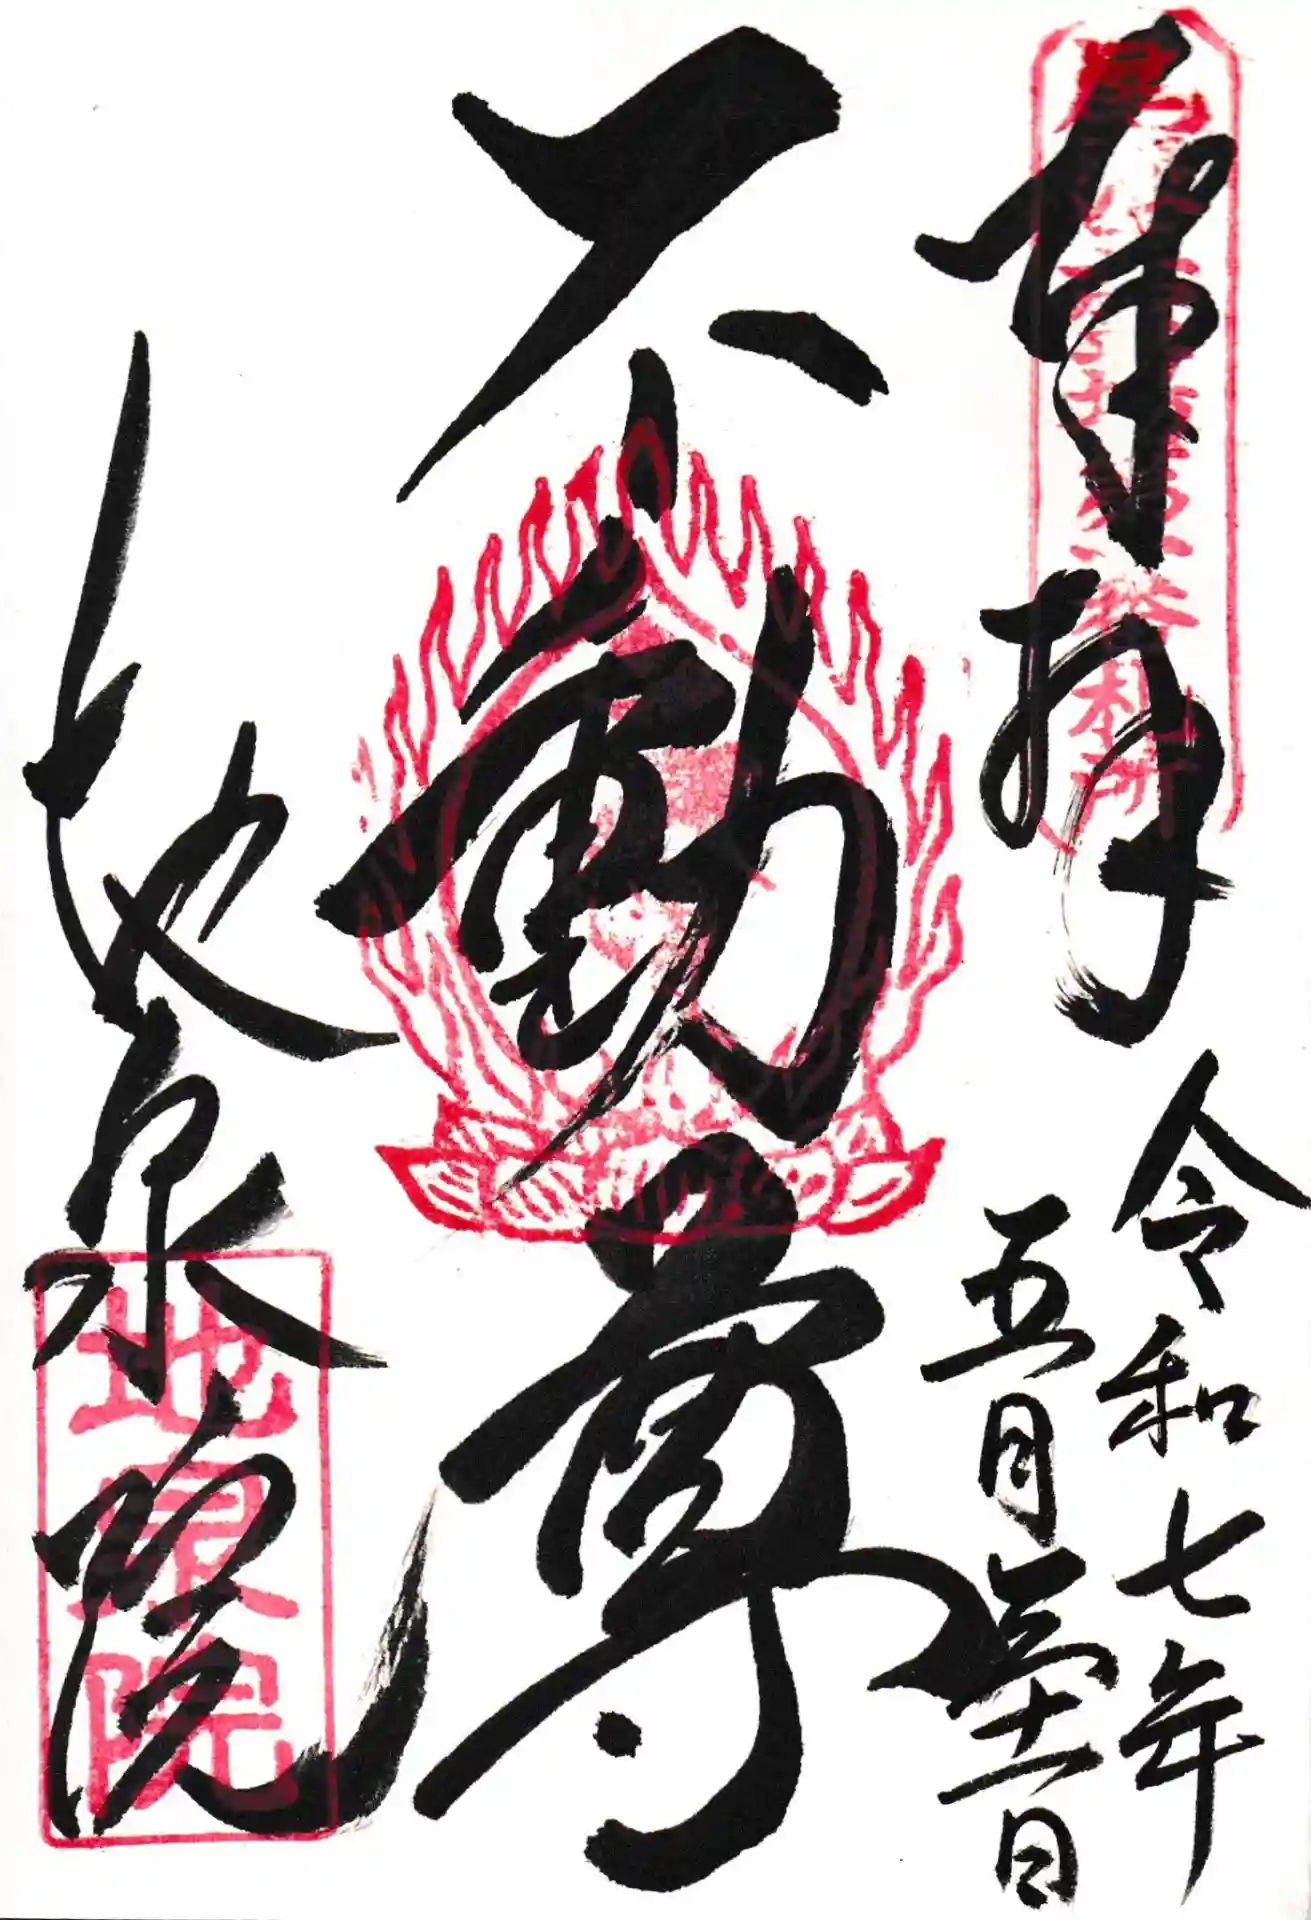 奉拝
令和七年
五月三十一日
不動尊
地泉院
地泉院